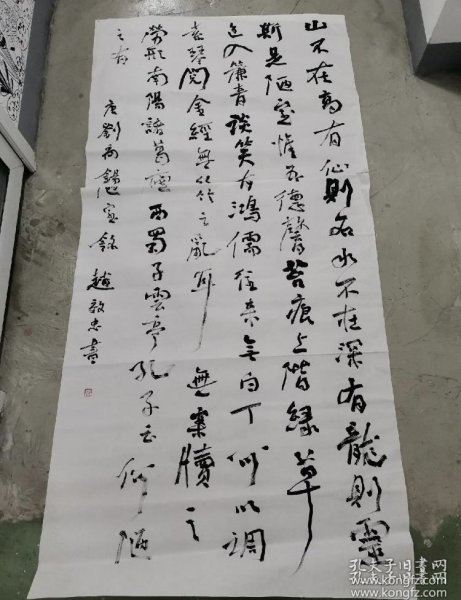 山不在高有仙則名水不在深有龍則靈
斯是陋室惟吾德馨苔痕上階綠草
色入簾青談笑有鴻儒往來無白丁可以調
素琴閱金經無絲竹之亂耳無案牘之
勞形南陽諸葛廬西蜀子雲亭孔子云何陋
之有
唐劉禹錫室銘 趙敬忠書
孔夫子旧书网
www.kongfz.com